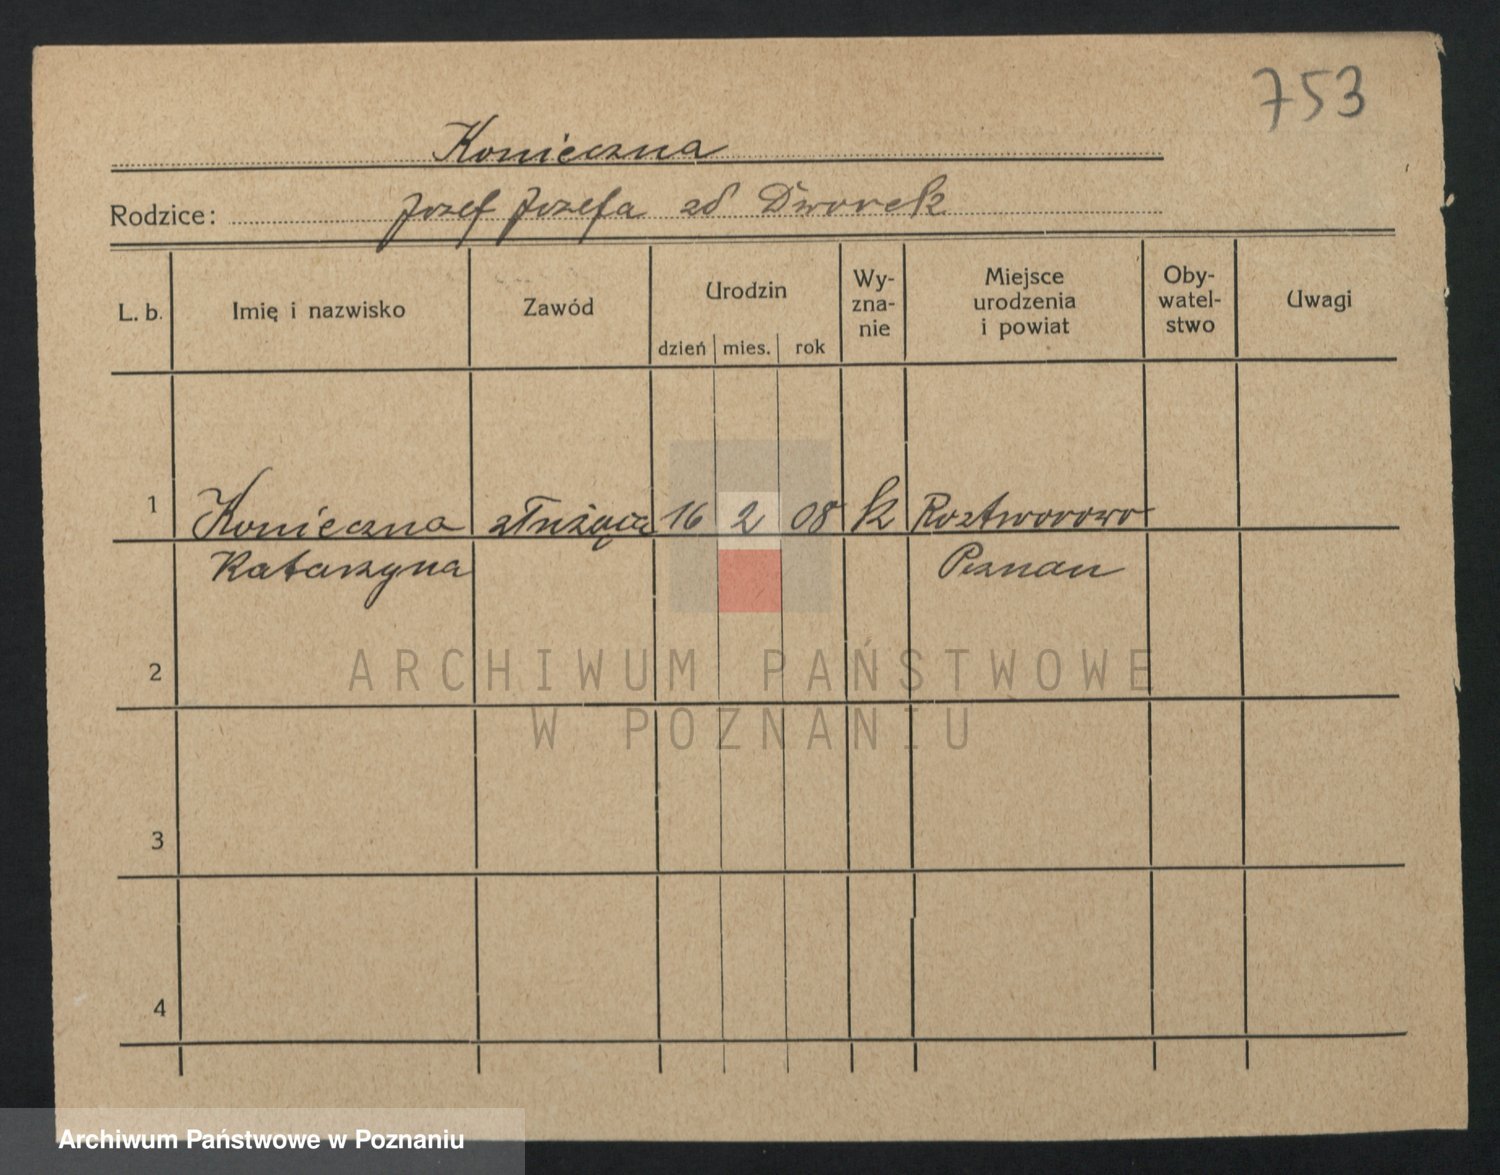 753
Konieczna
Rodzice: Józef Józefa zd Dworek
L. b. Imię i nazwisko Zawód Urodzin dzień mies. rok Wy-zna-nie Miejsce urodzenia i powiat Oby-watel-stwo Uwagi
1 Konieczna służąca 16 2 08 k Roztworowo
Katarzyna Poznań
2
3
4
ARCHIWUM PAŃSTWOWE
W POZNANIU
Archiwum Państwowe w Poznaniu